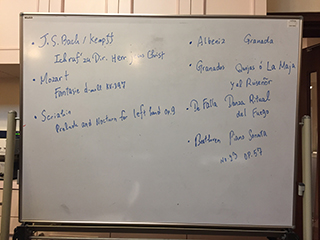 J.S. Bach / Kempff
Ich ruf' zu Dir, Herr J → Christ
• Mozart
Fantasie d-moll KV.397
• Scriabin
Prelude and Nocturne for left hand op.9
• Albeniz Granada
• Granados Quejas ó La Maja
y el Ruiseñor
• De Falla Danza Ritual
del Fuego
Beethoven Piano Sonata
nr.23 op.57